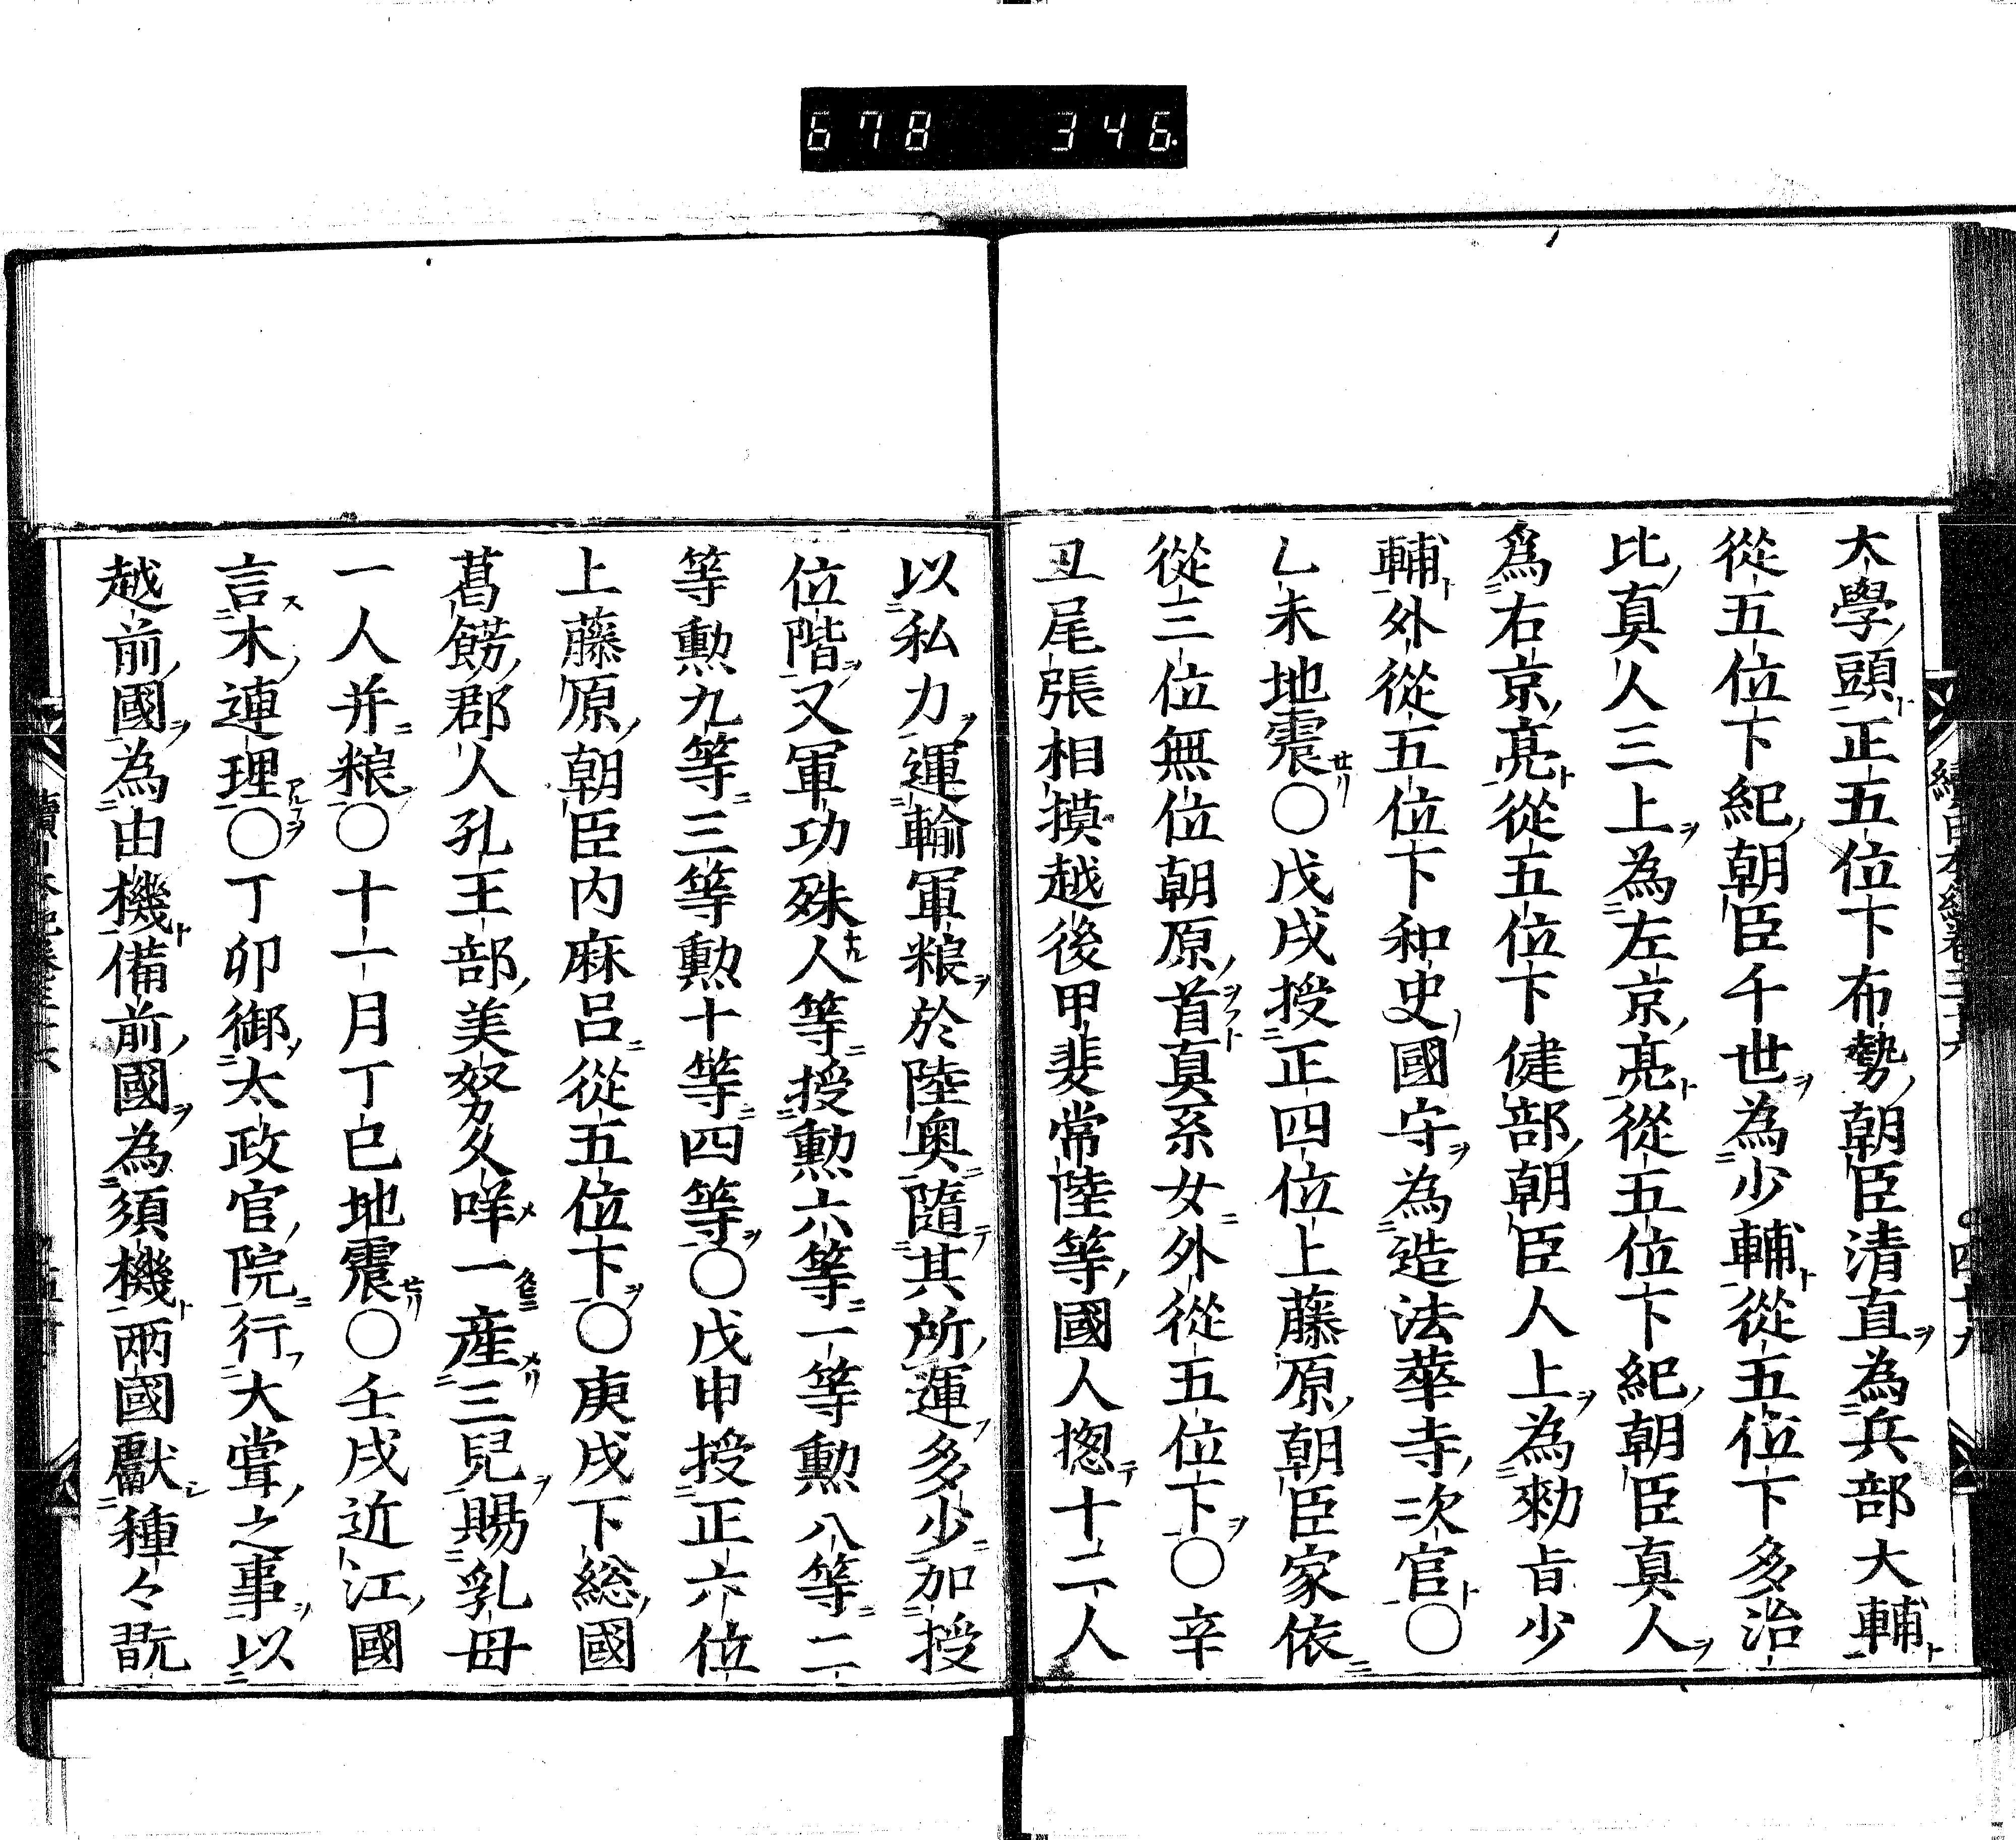 678 346.
大學頭正五位下布勢朝臣清直為兵部大輔
從五位下紀朝臣千世為少輔從五位下多治
比真人三上為左京亮從五位下紀朝臣真人
爲右京亮從五位下健部朝臣人上為勅旨少
輔外從五位下和史國守為造法華寺次官〇
乙未地震〇戊戌授正四位上藤原朝臣家依
從三位無位朝原首真糸女外從五位下〇辛
丑尾張相摸越後甲斐常陸等國人揔十二人
以私力運輸軍粮於陸奥隨其所運多少加授
位階又軍功殊人等授勲六等一等勲八等二
等勲九等三等勲十等四等〇戊申授正六位
上藤原朝臣内麻呂從五位下〇庚戌下総國
葛餝郡人孔王部美努久咩一産三兒賜乳母
一人并粮〇十一月丁巳地震〇壬戌近江國
言木連理〇丁卯御太政官院行大甞之事以
越前國為由機備前國為須機兩國獻種々翫